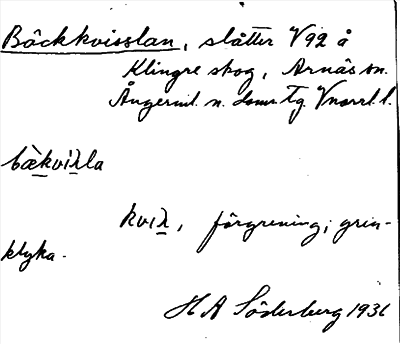 Bäckkvisslan, slåtter V92 å
Klingre skog, Arnäs sn.
Ångerml. n. doms. Tg. Vnorrl. l.
bæ̀kviʌla
kviʌ, förgrening; gren-
klyka.
H A Söderberg 1931